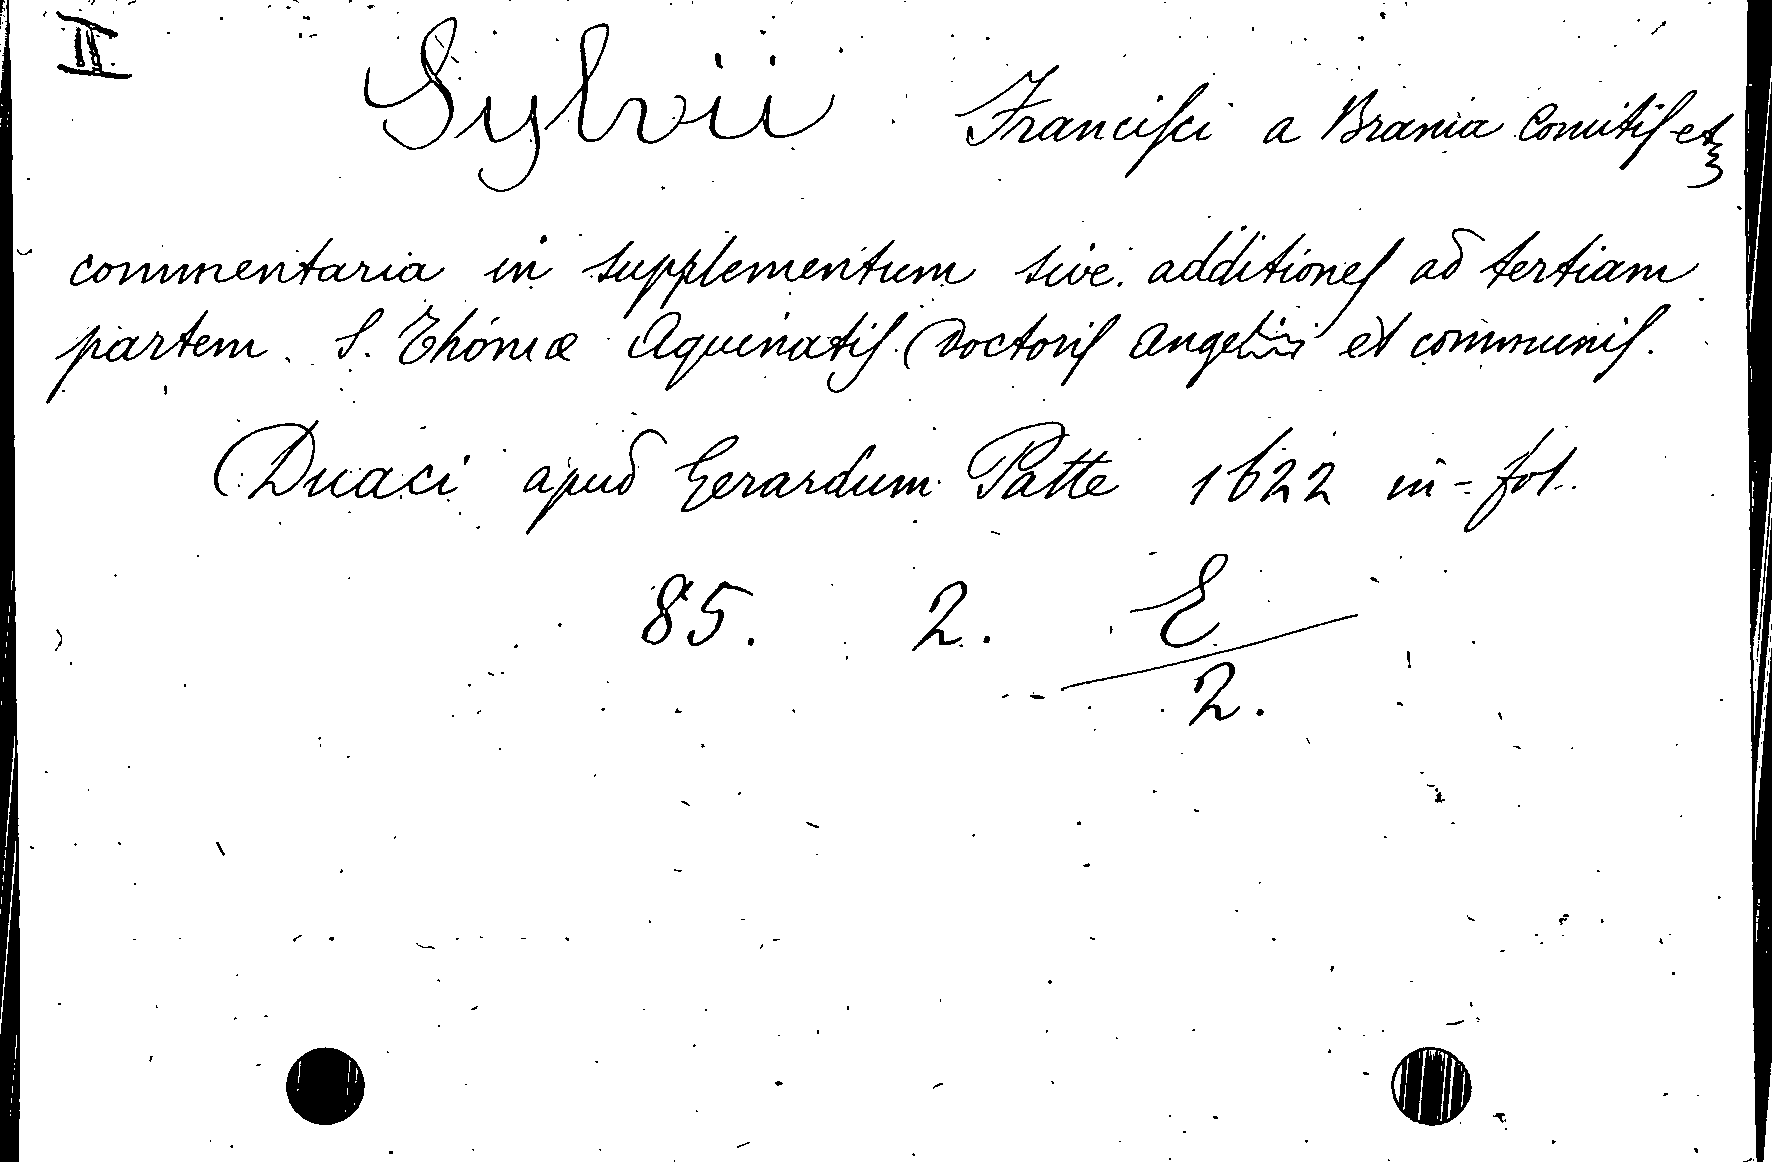 II
Sylvii Francisci a Brania Comitis et
commentaria in supplementum sive additiones ad tertiam
partem S. Thomæ Aquinatis Doctoris angelici et communis.
Duaci apud Gerardum Patte 1622 in-fol.
85. 2. E
2.